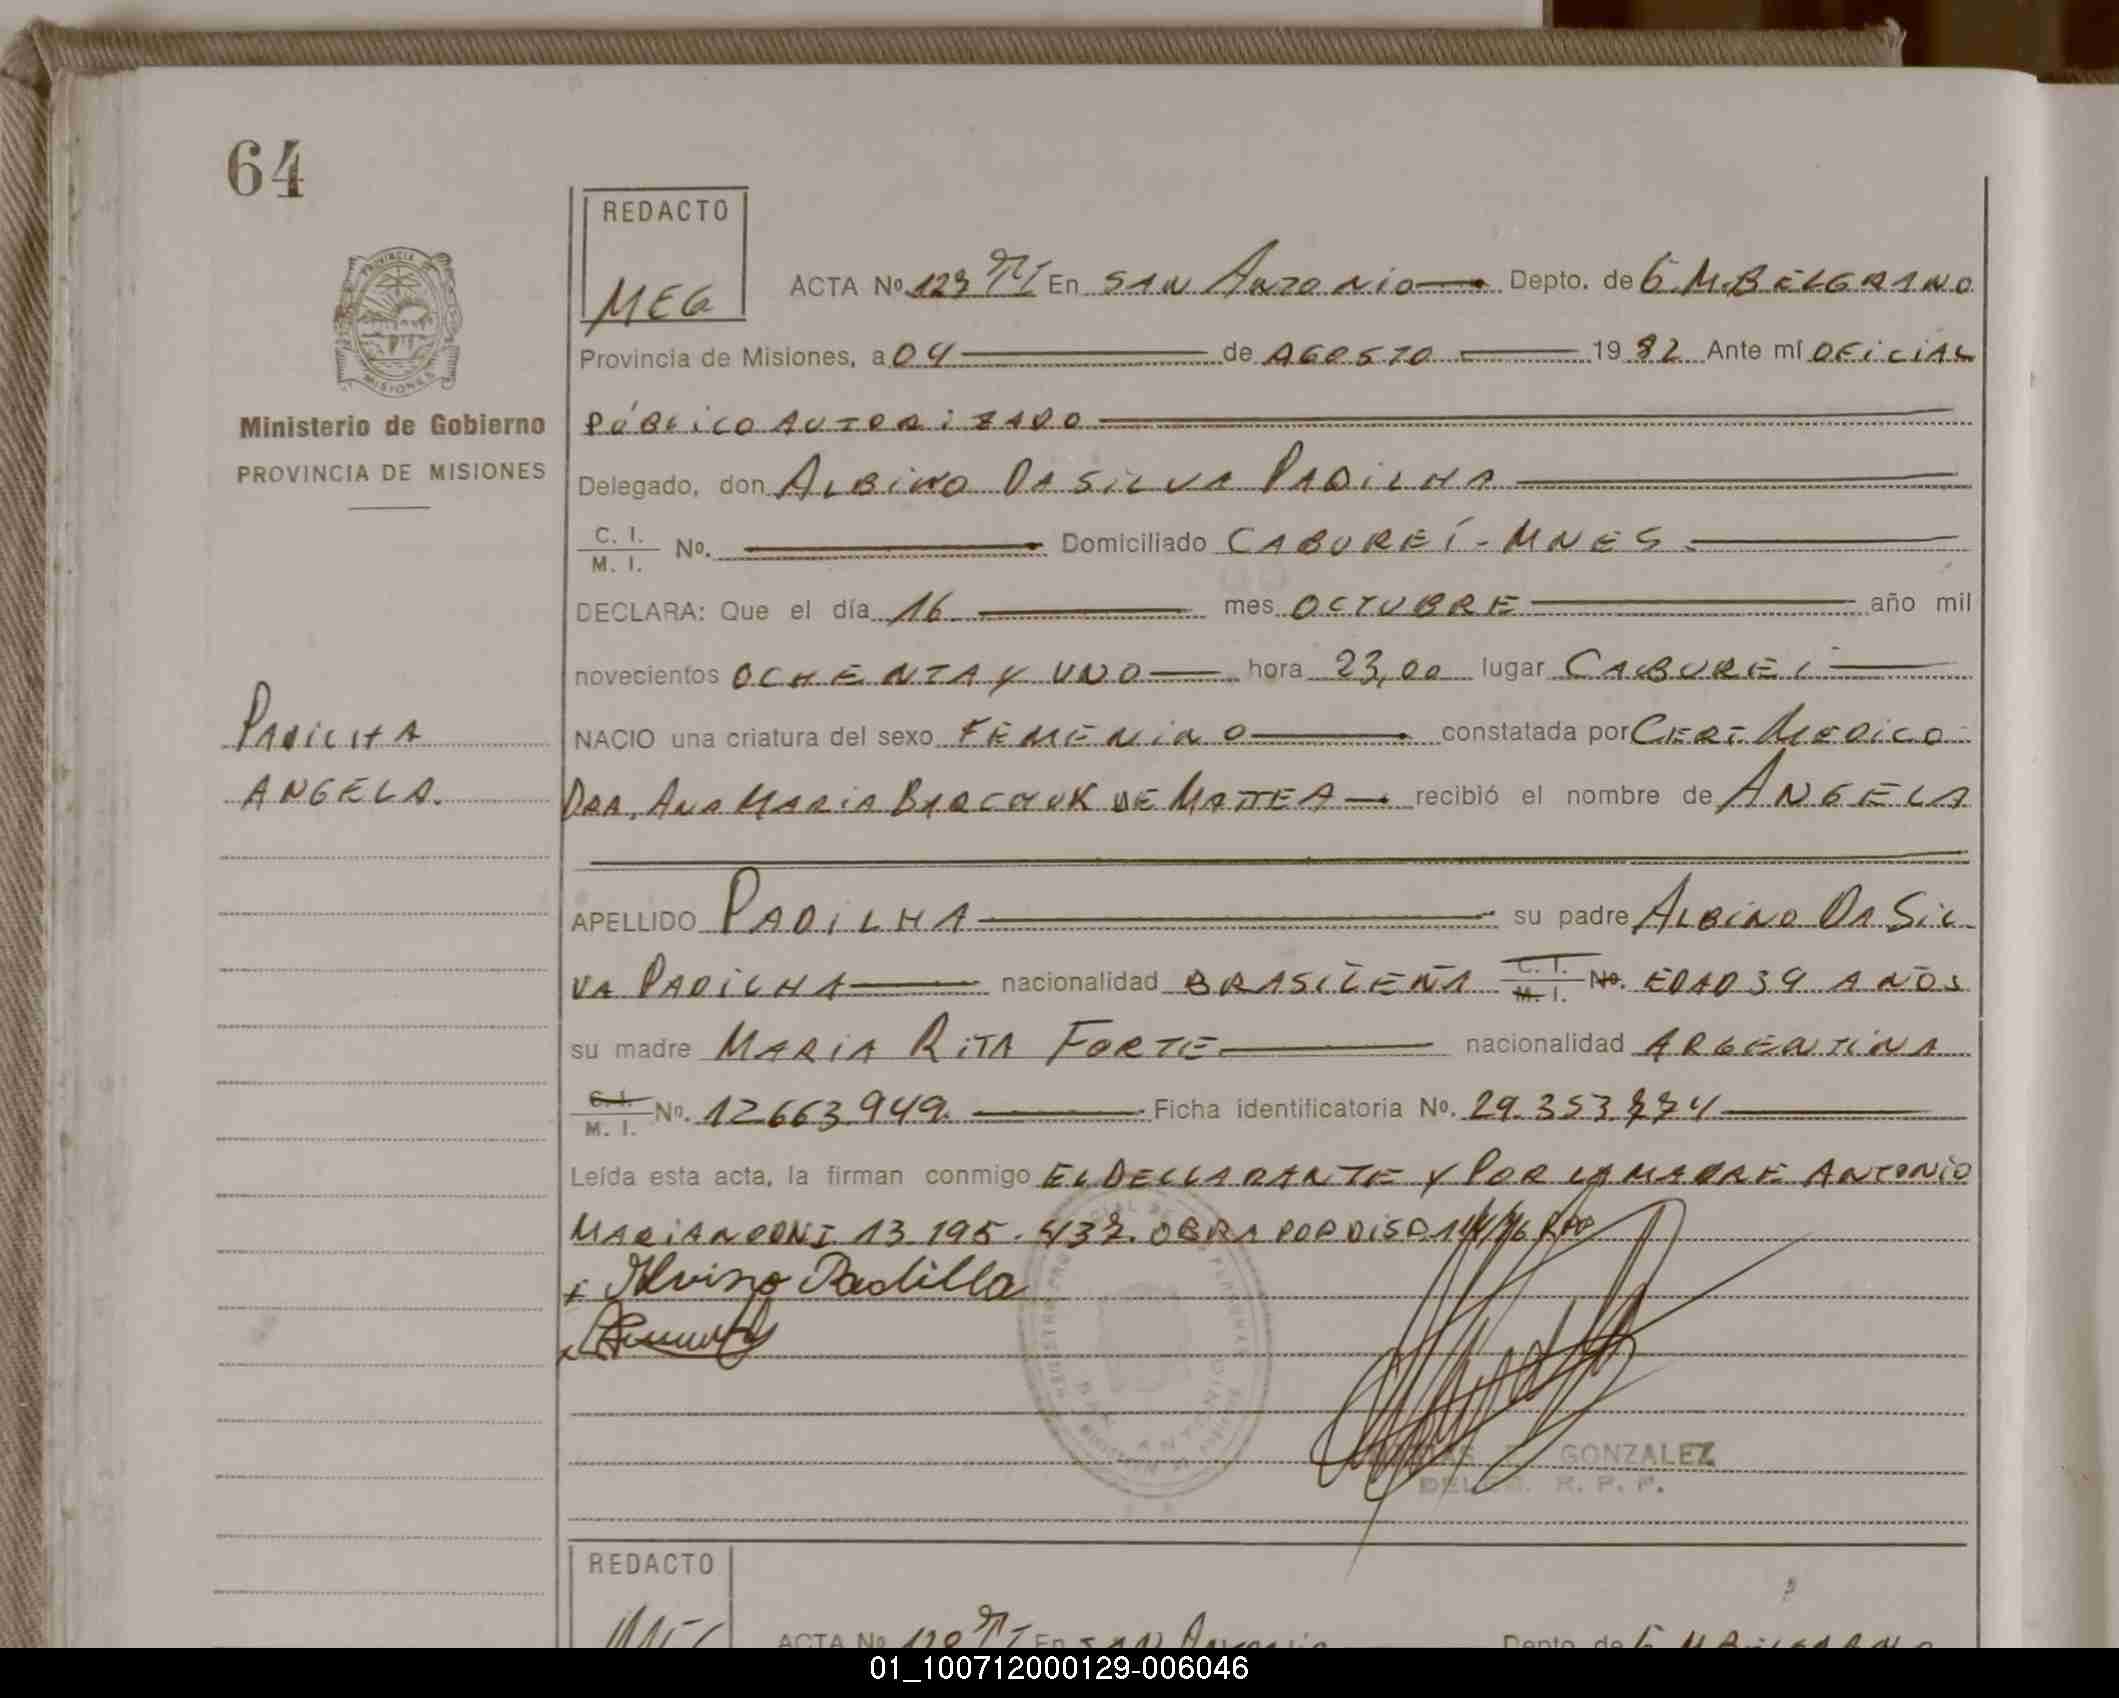 64
REDACTO
MEG
ACTA Nº 123 TI En SAN ANTONIO Depto. de G. M. BELGRANO
Provincia de Misiones, a 04 de AGOSTO 1982 Ante mí OFICIAL
PÚBLICO AUTORIZADO
Delegado, don ALBINO DA SILVA PADILHA
C. I.
M. I. Nº. Domiciliado CABUREÍ - MNES.
DECLARA: Que el día 16 mes OCTUBRE año mil
novecientos OCHENTA Y UNO hora 23,00 lugar CABUREI
NACIO una criatura del sexo FEMENINO constatada por CERT. MEDICO
DRA. ANA MARIA BARCHUK DE MATTEA recibió el nombre de ANGELA
APELLIDO PADILHA su padre ALBINO DA SIL-
VA PADILHA nacionalidad BRASILEÑA C. I. M. I. Nº. EDAD 39 AÑOS
su madre MARIA RITA FORTE nacionalidad ARGENTINA
C. I.
M. I. Nº. 12.663.949. Ficha identificatoria Nº. 29.353.774
Leída esta acta, la firman conmigo EL DECLARANTE Y POR LA MADRE ANTONIO
MARIANCONI 13.195.437. OBRA POR DISP. RPP
x Alvino Padilla
GONZALEZ
R. P. P.
Ministerio de Gobierno
PROVINCIA DE MISIONES
PADILHA
ANGELA.
REDACTO
ACTA Nº En SAN ANTONIO Depto. de G. M. BELGRANO
01_100712000129-006046